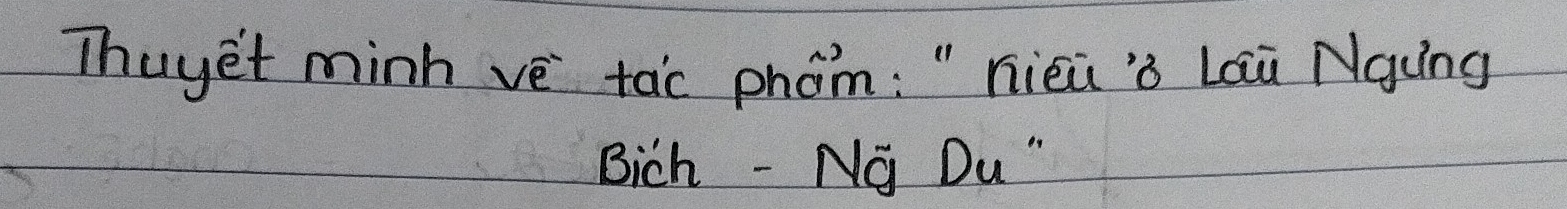 Thuyết minh về tác phẩm: " Kiều ở Lầu Ngưng
Bích - Ng̃ Du "